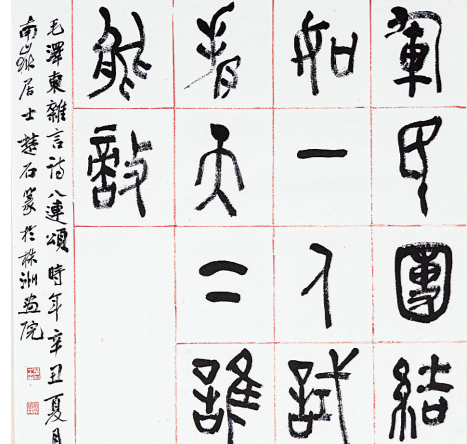 軍民團結
如一人試
看天下誰
能敵
毛澤東雜言詩八連頌時年辛丑夏月
南嶽居士楚石篆於株洲畫院